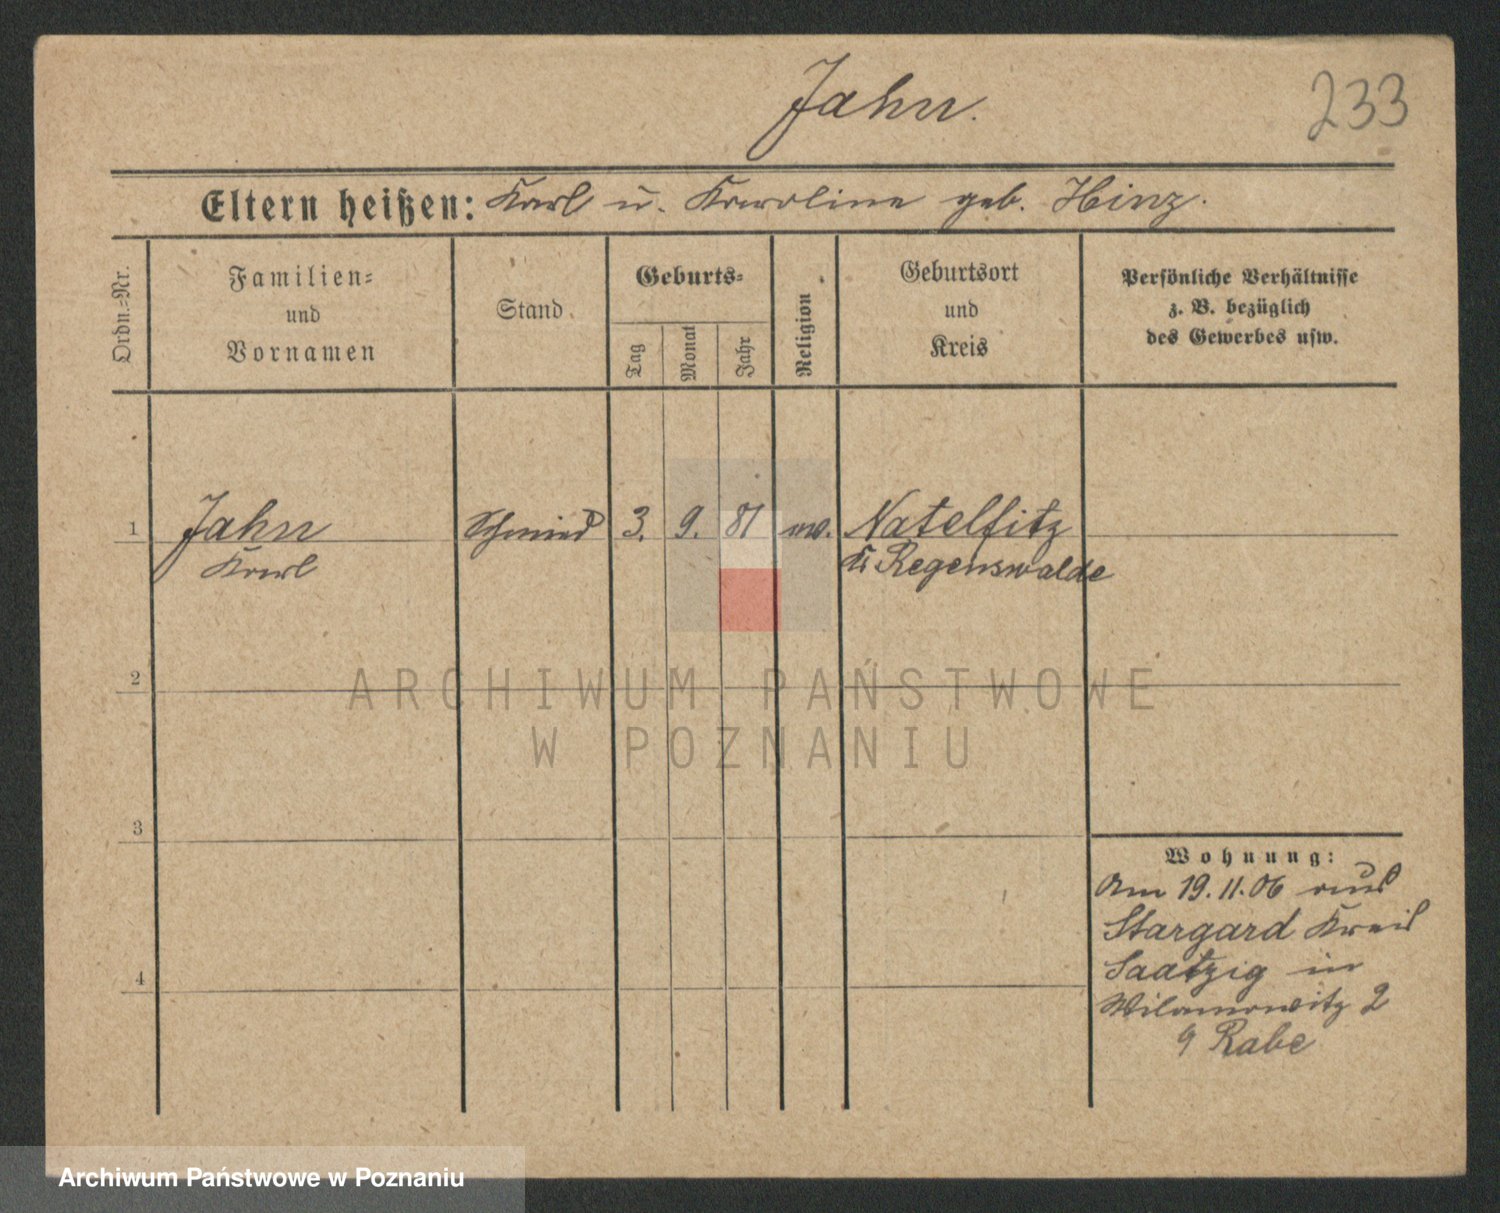 Jahn.
233
Eltern heißen: Karl u. Karoline geb. Hinz.
Ordn.=Nr.
Familien=
und
Vornamen
Stand
Geburts=
Tag
Monat
Jahr
Religion
Geburtsort
und
Kreis
Persönliche Verhältnisse
z. B. bezüglich
des Gewerbes usw.
1
Jahn
Karl
Schmied
3.
9.
81
ev.
Natelfitz
Kr Regenswalde
2
3
4
Wohnung:
Am 19.11.06 aus
Stargard Kreis
Saatzig in
Wilamowitz 2
Rabe
ARCHIWUM PAŃSTWOWE
W POZNANIU
Archiwum Państwowe w Poznaniu